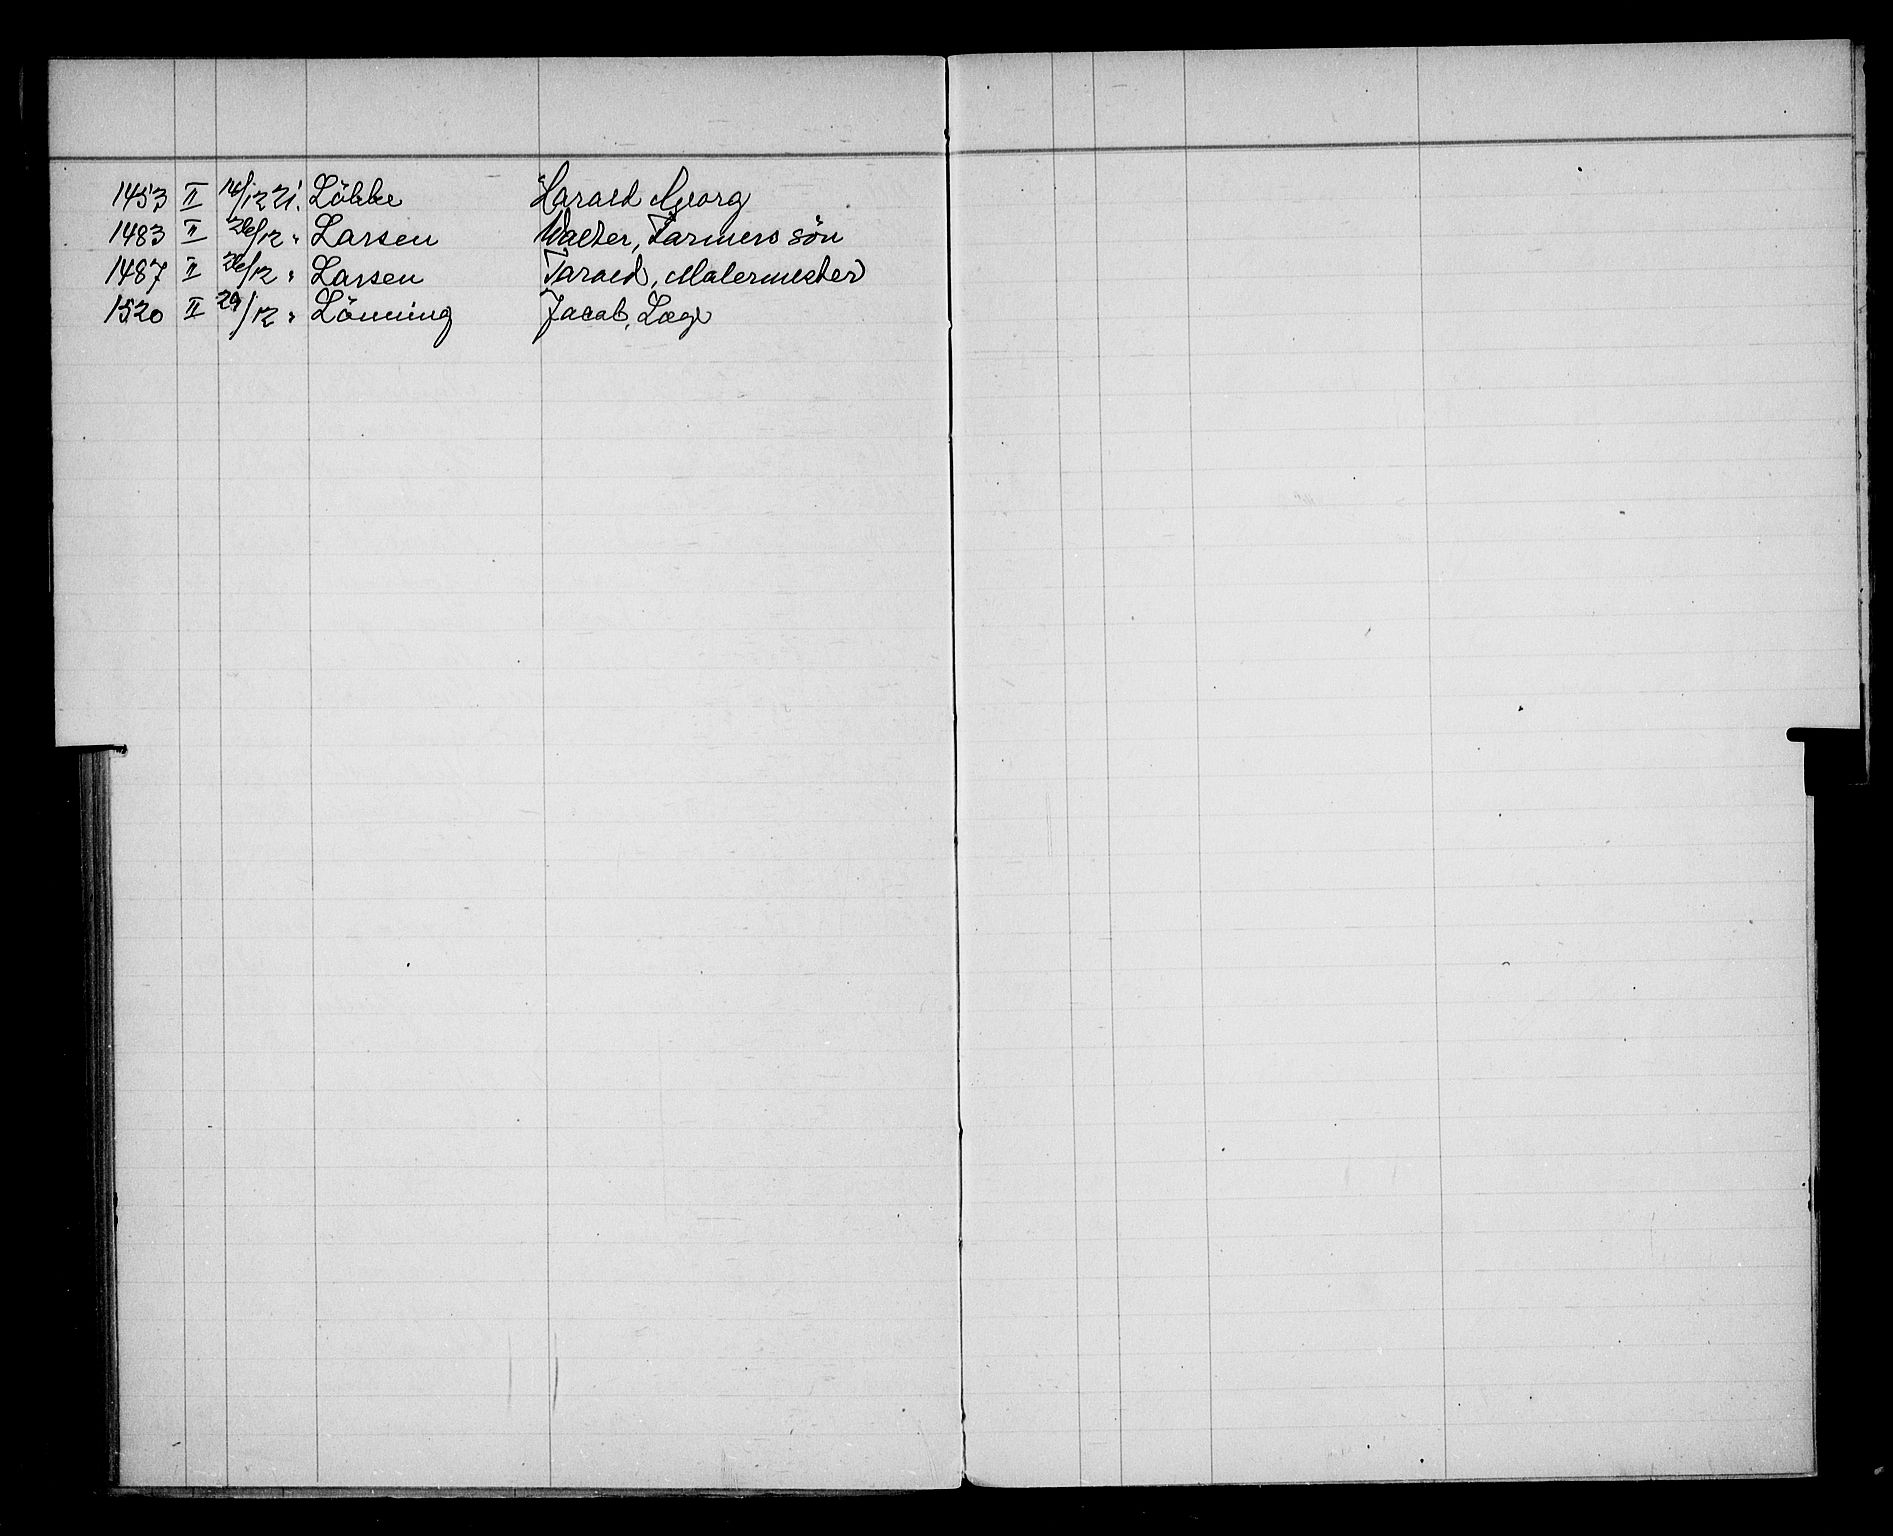 1453 II 14/12 21. Löbbe Harald Georg
1483 II 26/12 " Larsen Walter, Farmers sön
1487 II 26/12 " Larsen Tarald, Malermester
1520 II 29/12 " Lönning Jacob, Læge